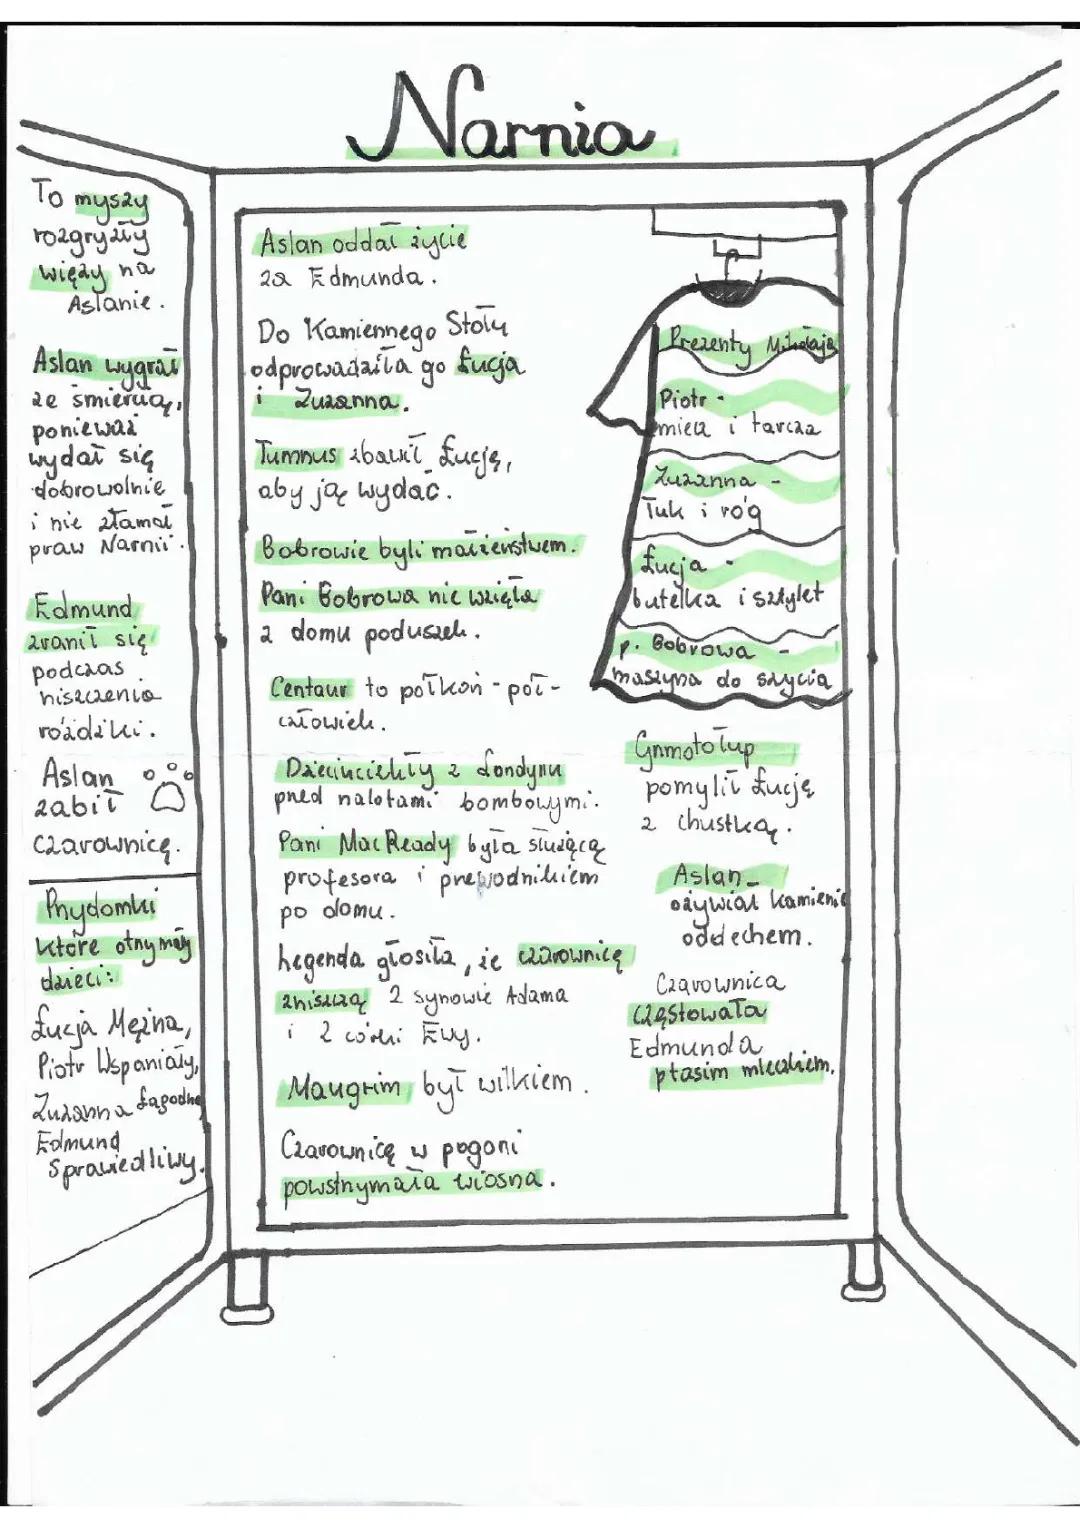 Narnia
To myszy
rozgryzły
więzy na
Aslanie.
Aslan wygrał
ze śmiercią,
ponieważ
wydał się
dobrowolnie
i nie złamał
praw Narnii.
Edmund
zranił się
podczas
niszczenia
różdżki.
Aslan
zabił
czarownicę.
Przydomki
które otrzymały
dzieci:
Łucja Mężna,
Piotr Wspaniały,
Zuzanna Łagodna
Edmund
Sprawiedliwy.
Aslan oddał życie
za Edmunda.
Do Kamiennego Stołu
odprowadziła go Łucja
i Zuzanna.
Tumnus zbawił Łucję,
aby ją wydać.
Bobrowie byli małżeństwem.
Pani Bobrowa nie wzięła
z domu poduszek.
Centaur to półkoń - pół-
człowiek.
Dzieci uciekły z Londynu
przed nalotami bombowymi.
Pani MacReady była służącą
profesora i przewodnikiem
po domu.
Legenda głosiła, że czarownicę
zniszczą 2 synowie Adama
i 2 córki Ewy.
Maugrim był wilkiem.
Czarownicę w pogoni
powstrzymała wiosna.
Prezenty Mikołaja
Piotr -
miecz i tarcza
Zuzanna -
Łuk i róg
Łucja -
butelka i sztylet
p. Bobrowa -
maszyna do szycia
Grzmotołup
pomylił Łucję
z chustką.
Aslan
ożywiał kamienie
oddechem.
Czarownica
częstowała
Edmunda
ptasim mleczkiem.